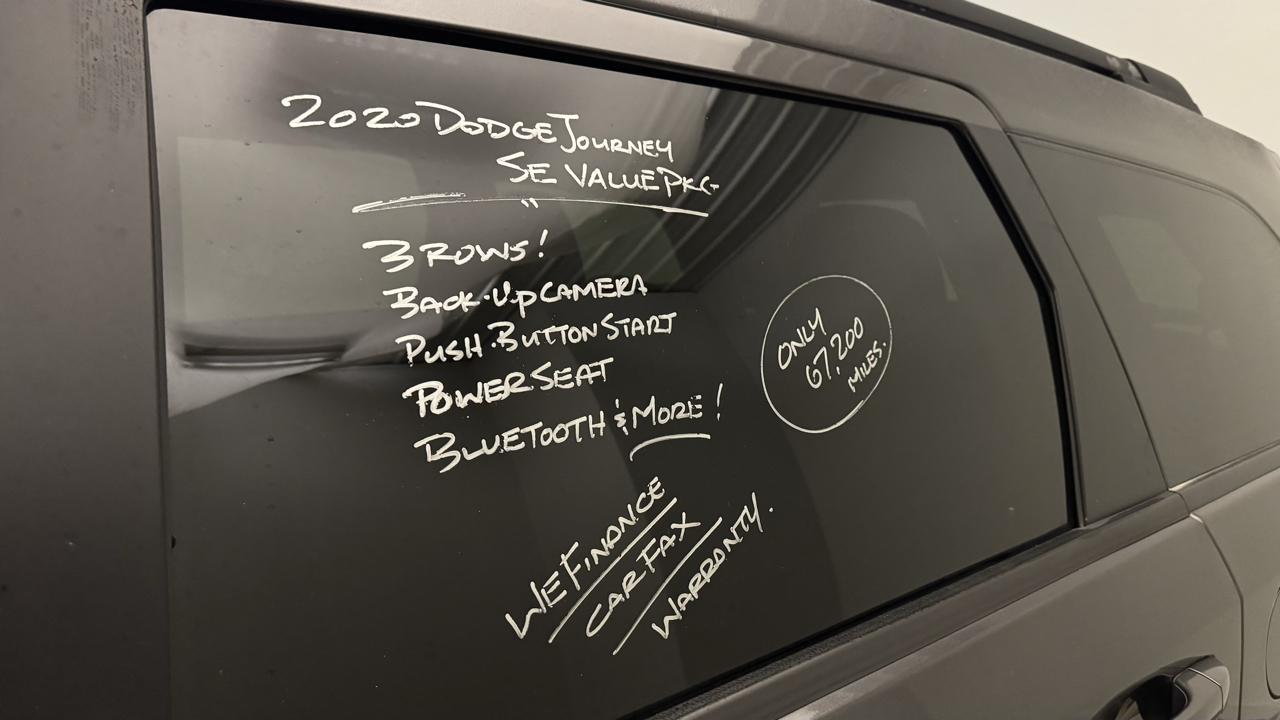 2020 DODGE JOURNEY
SE VALUE PKG
3 ROWS!
BACK-UP CAMERA
PUSH BUTTON START
POWER SEAT
BLUETOOTH & MORE!
ONLY
67,200
MILES.
WE FINANCE
CAR FAX
WARRANTY.